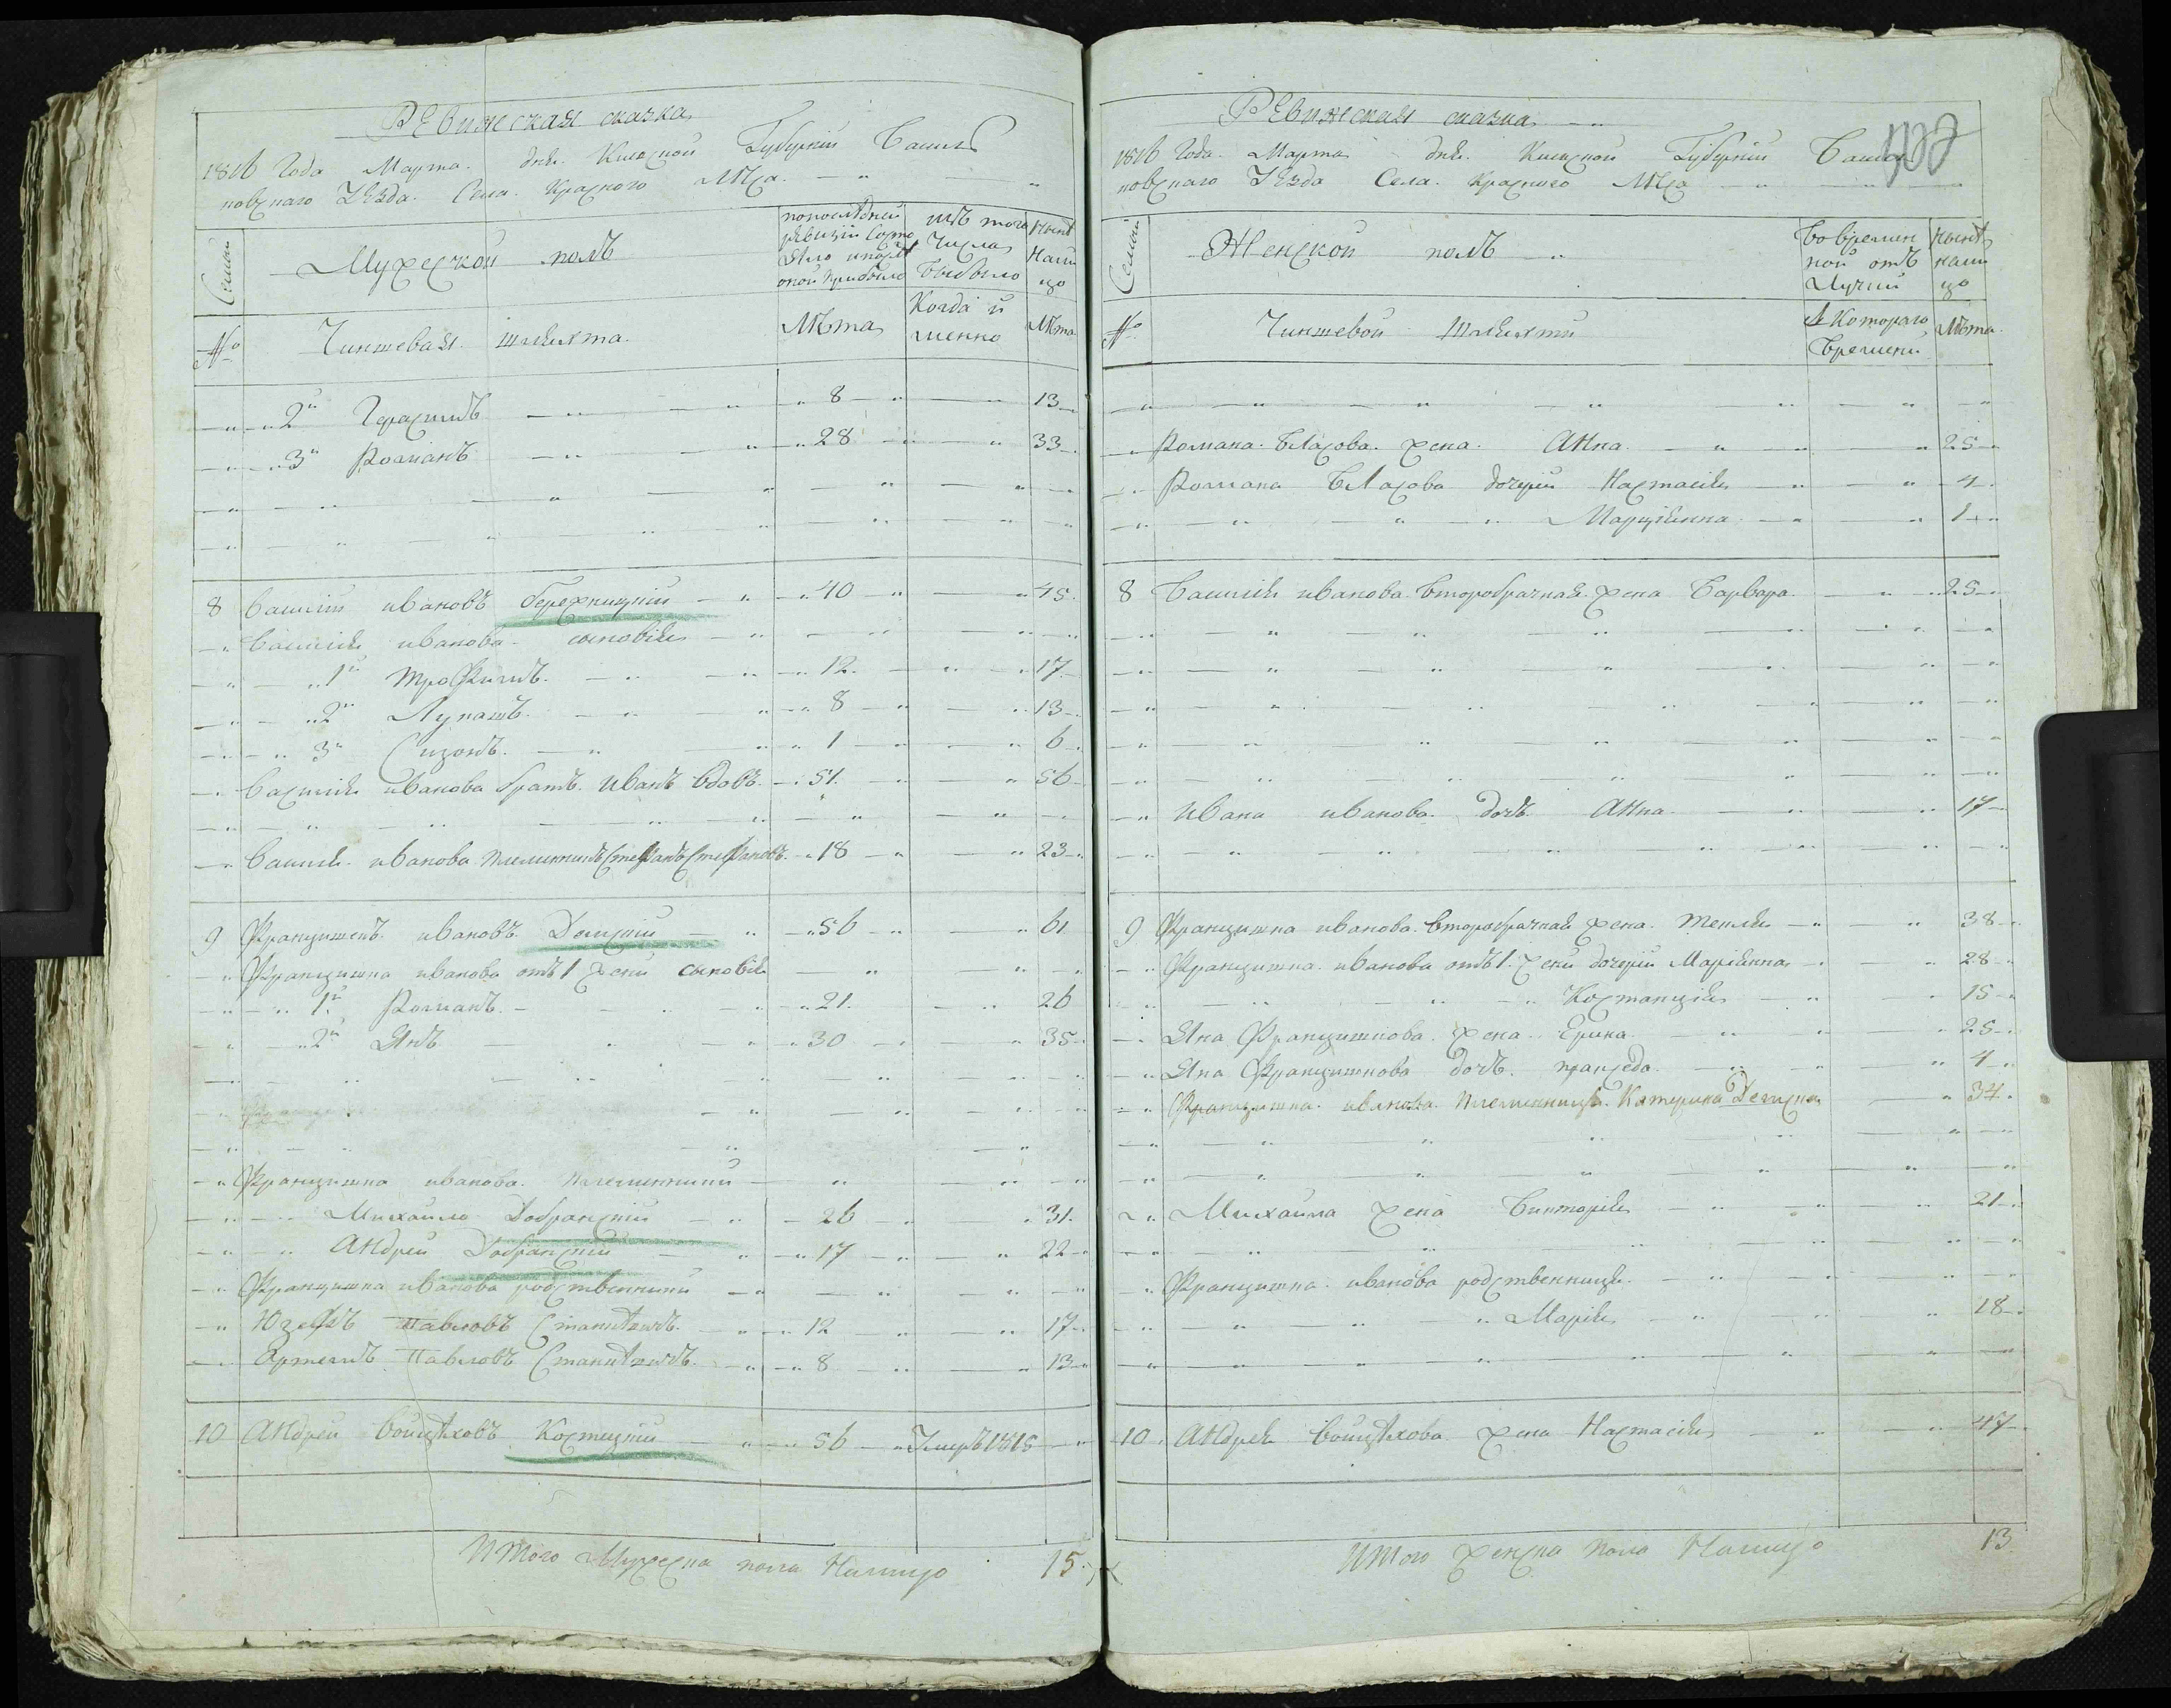 Ревижская сказка
1816 Года Марта. дня. Киевской Губернїи Василь
ковскаго Уезда. Села. Красного Лѣса.
Семьи
Мужеской полъ
попоследней ревизїи состо яло ипосле оной прибыло
изъ того Числа Выбыло
Нынѣ Нали цо
№
Чиншевая шляхта.
Лѣта
Когда и менно
Лѣта
2й Герасимъ 8 13
3й Романъ 28 33
8 Василїй ивановъ бережницкїй 40 45
Василїя иванова сыновїя
1й Трофимъ. 12. 17
2й Лукашъ. 8 13
3й Сизонъ. 1 6
Василїя иванова братъ. Иванъ вдовъ. 51. 56
Василїя иванова племянникъ Стефанъ Стефановъ. 18 23
9 Францишекъ ивановъ 56 61
Францишка иванова отъ 1 жены сыновїя
1й Романъ. 21. 26
2й Янъ 30 35
Францишка иванова племянники
Михайло Добранскїй 26 31.
Андрей Добранскїй 17 22
Францишка иванова родственники
Юзефъ Павловъ 12 17
Артемъ Павловъ 8 13
10 Андрей войцѣховъ Костецкїй 56 Умеръ 1815
Итого Мужеска пола Налицо 15
Ревижская сказка
422
1816 Года. Марта дня. Киевской Губернїи Василь
ковскаго Уезда Села. Красного Лѣса
Семьи
Женской полъ
Вовремен ной отъ Лучки
Нынѣ нали цо
№
Чиншевой Шляхты
Скотораго Времени
Лѣта
Романа. Власова. жена. Анна. 25
Романа Власова дочери Настасїя 4
Марцїянна. 1
8 Василїя иванова. второбрачная. жена Варвара. 25
Ивана иванова. дочь. Анна. 17
9 Францишка иванова. второбрачная жена. Текля 38
Францишка. иванова отъ 1. жены дочери Марїянна 28
Костанцїя 15
Яна Францишкова. жена. Ерина. 25
Яна Францишкова дочь. 4
Францишка. иванова. племянница. Катерина 34.
Михайла жена Викторїя 21
Францишка. иванова родственница.
Марїя 18
10 Андрея войцѣхова жена Настасїя 47
Итого женска пола Налицо 13